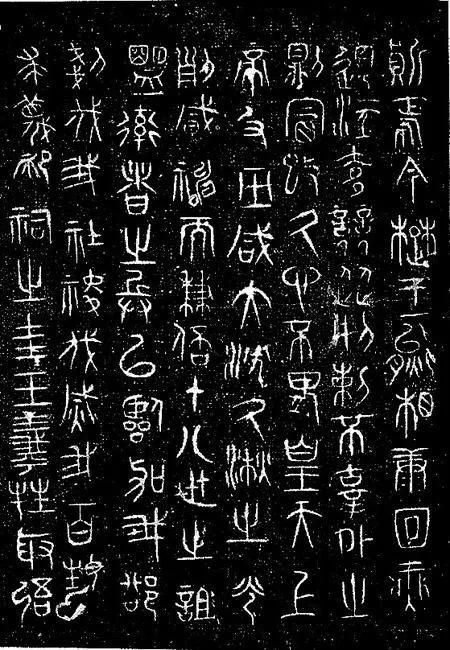 質焉今楚王熊相康回無
道淫夸競從刺不辜外之
則冒改久心不畏皇天上
帝及咸大沈久湫之光
列威神而兼倍十八世之詛
盟率者之兵以臨加我欲
剗伐我社稷伐滅我百姓
求蔑祠之圭玉羲牲取倍